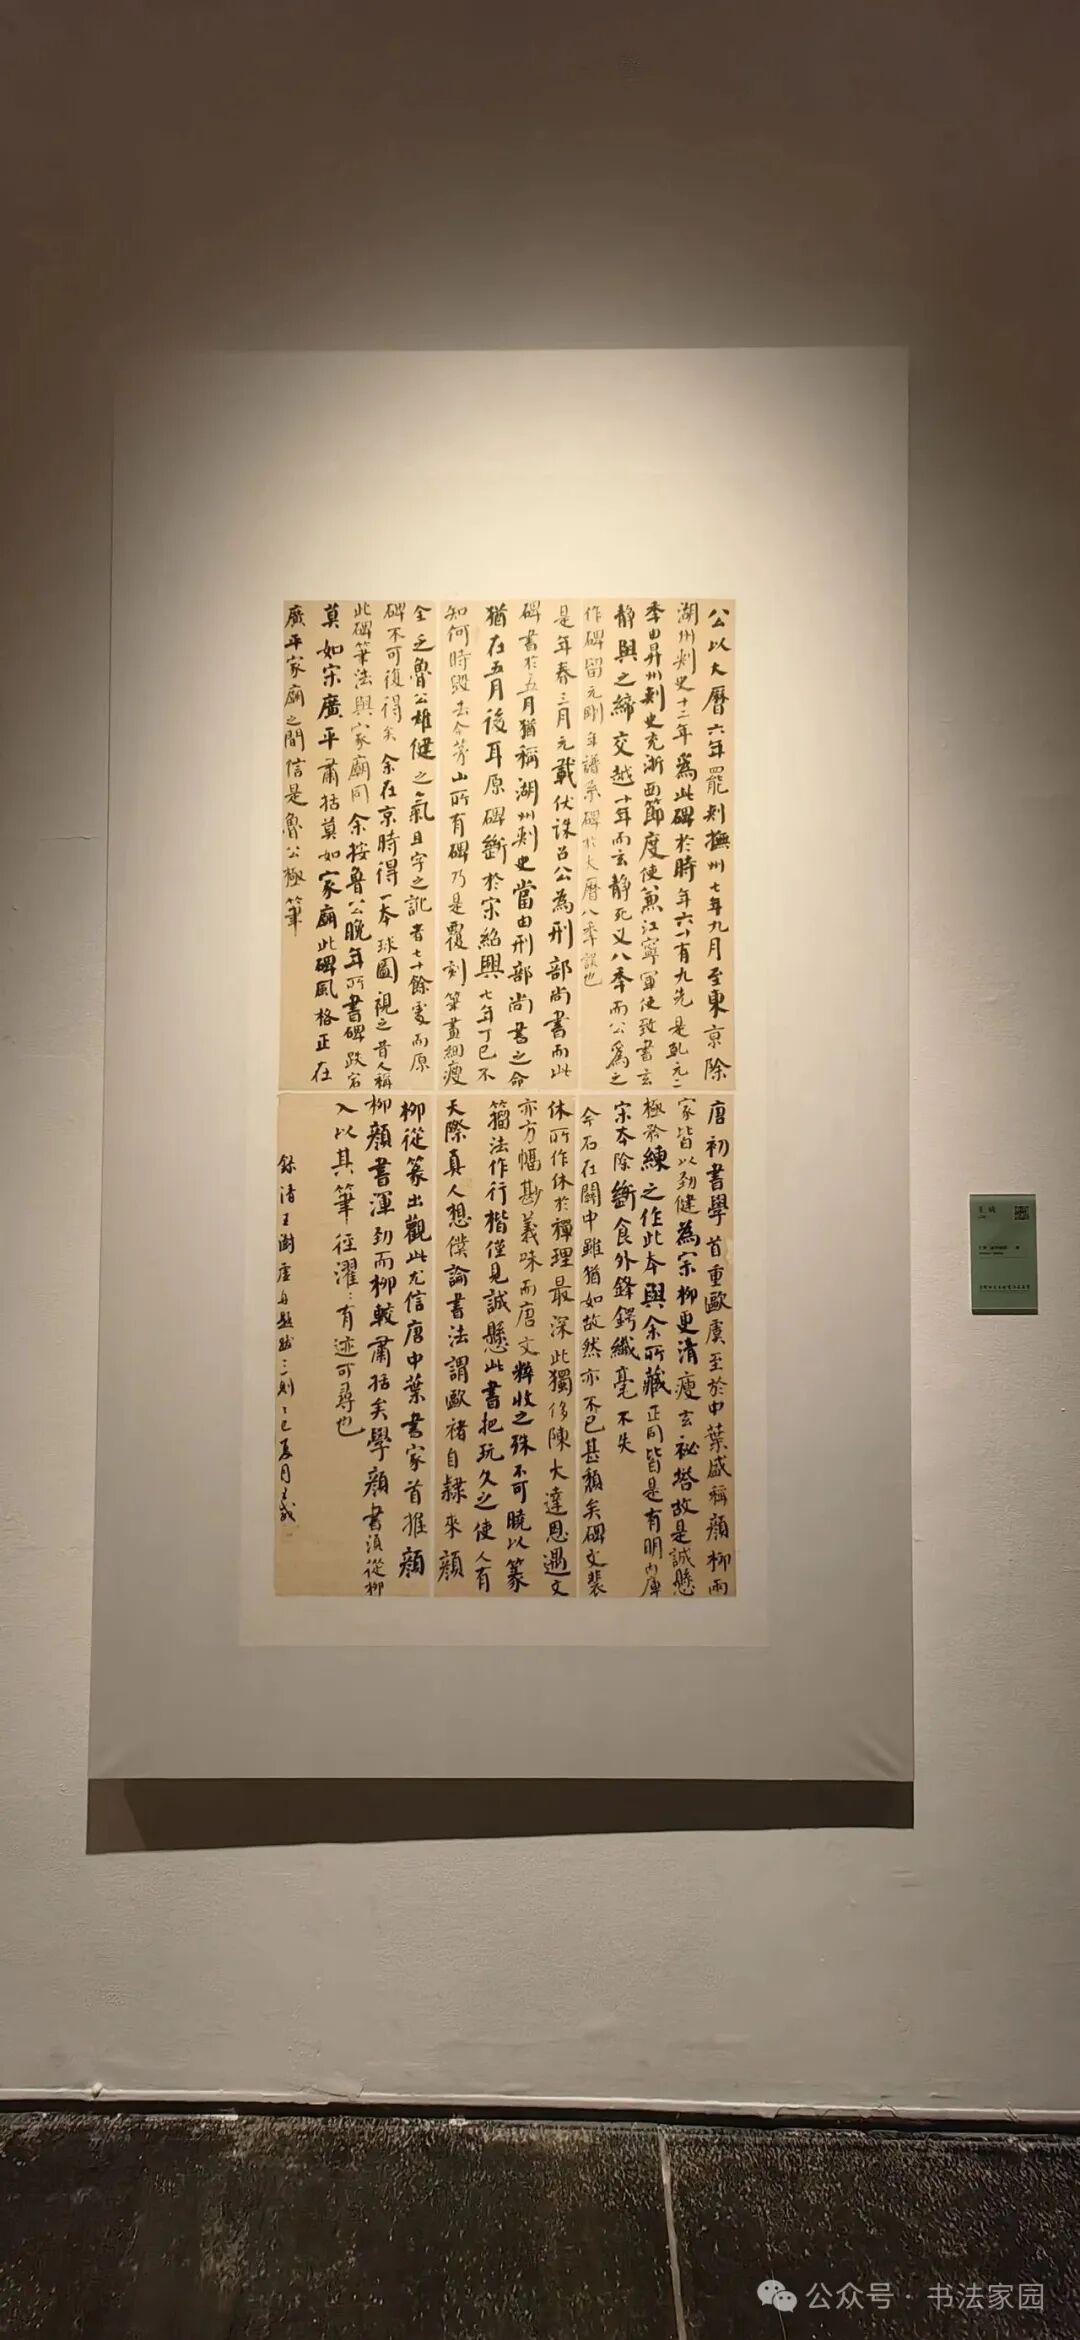 公以大曆六年罷刺撫州七年九月至東京除
湖州刺史十二年為此碑於時年六十有九先是乾元二
季由昇州刺史充浙西節度使兼江寧軍使致書玄
靜與之締交越十年而玄靜死又八季而公為之
作碑留元剛年譜系碑於大曆八季誤也
是年春三月元載伏誅召公為刑部尚書而此
碑書於五月猶稱湖州刺史當由刑部尚書之命
猶在五月後耳原碑斷於宋紹興七年丁巳不
知何時毀去今茅山所有碑乃是覆刻筆畫細瘦
全乏魯公雄健之氣且字之訛者七十餘處而原
碑不可復得矣余在京時得一本球圖視之昔人稱
此碑筆法與家廟同余按魯公晚年所書碑跌宕
莫如宋廣平肅括莫如家廟此碑風格正在
廣平家廟之間信是魯公極筆
唐初書學首重歐虞至於中葉盛稱顏柳兩
家皆以勁健為宗柳更清瘦玄祕塔故是誠懸
極矜練之作此本與余所藏正同皆是有明內庫
宋本除斷食外鋒鍔纖毫不失
今石在關中雖猶如故然亦不已甚頹矣碑文裴
休所作休於禪理最深此獨侈陳大達恩遇文
亦方幅尠義味而唐文粹收之殊不可曉以篆
籀法作行楷僅見誠懸此書把玩久之使人有
天際真人想僕論書法謂歐褚自隸來顏
柳從篆出觀此尤信唐中葉書家首推顏
柳顏書渾勁而柳較肅括矣學顏書須從柳
入以其筆徑濯濯有迹可尋也
錄清王澍虛舟題跋二則乙巳夏月王戎